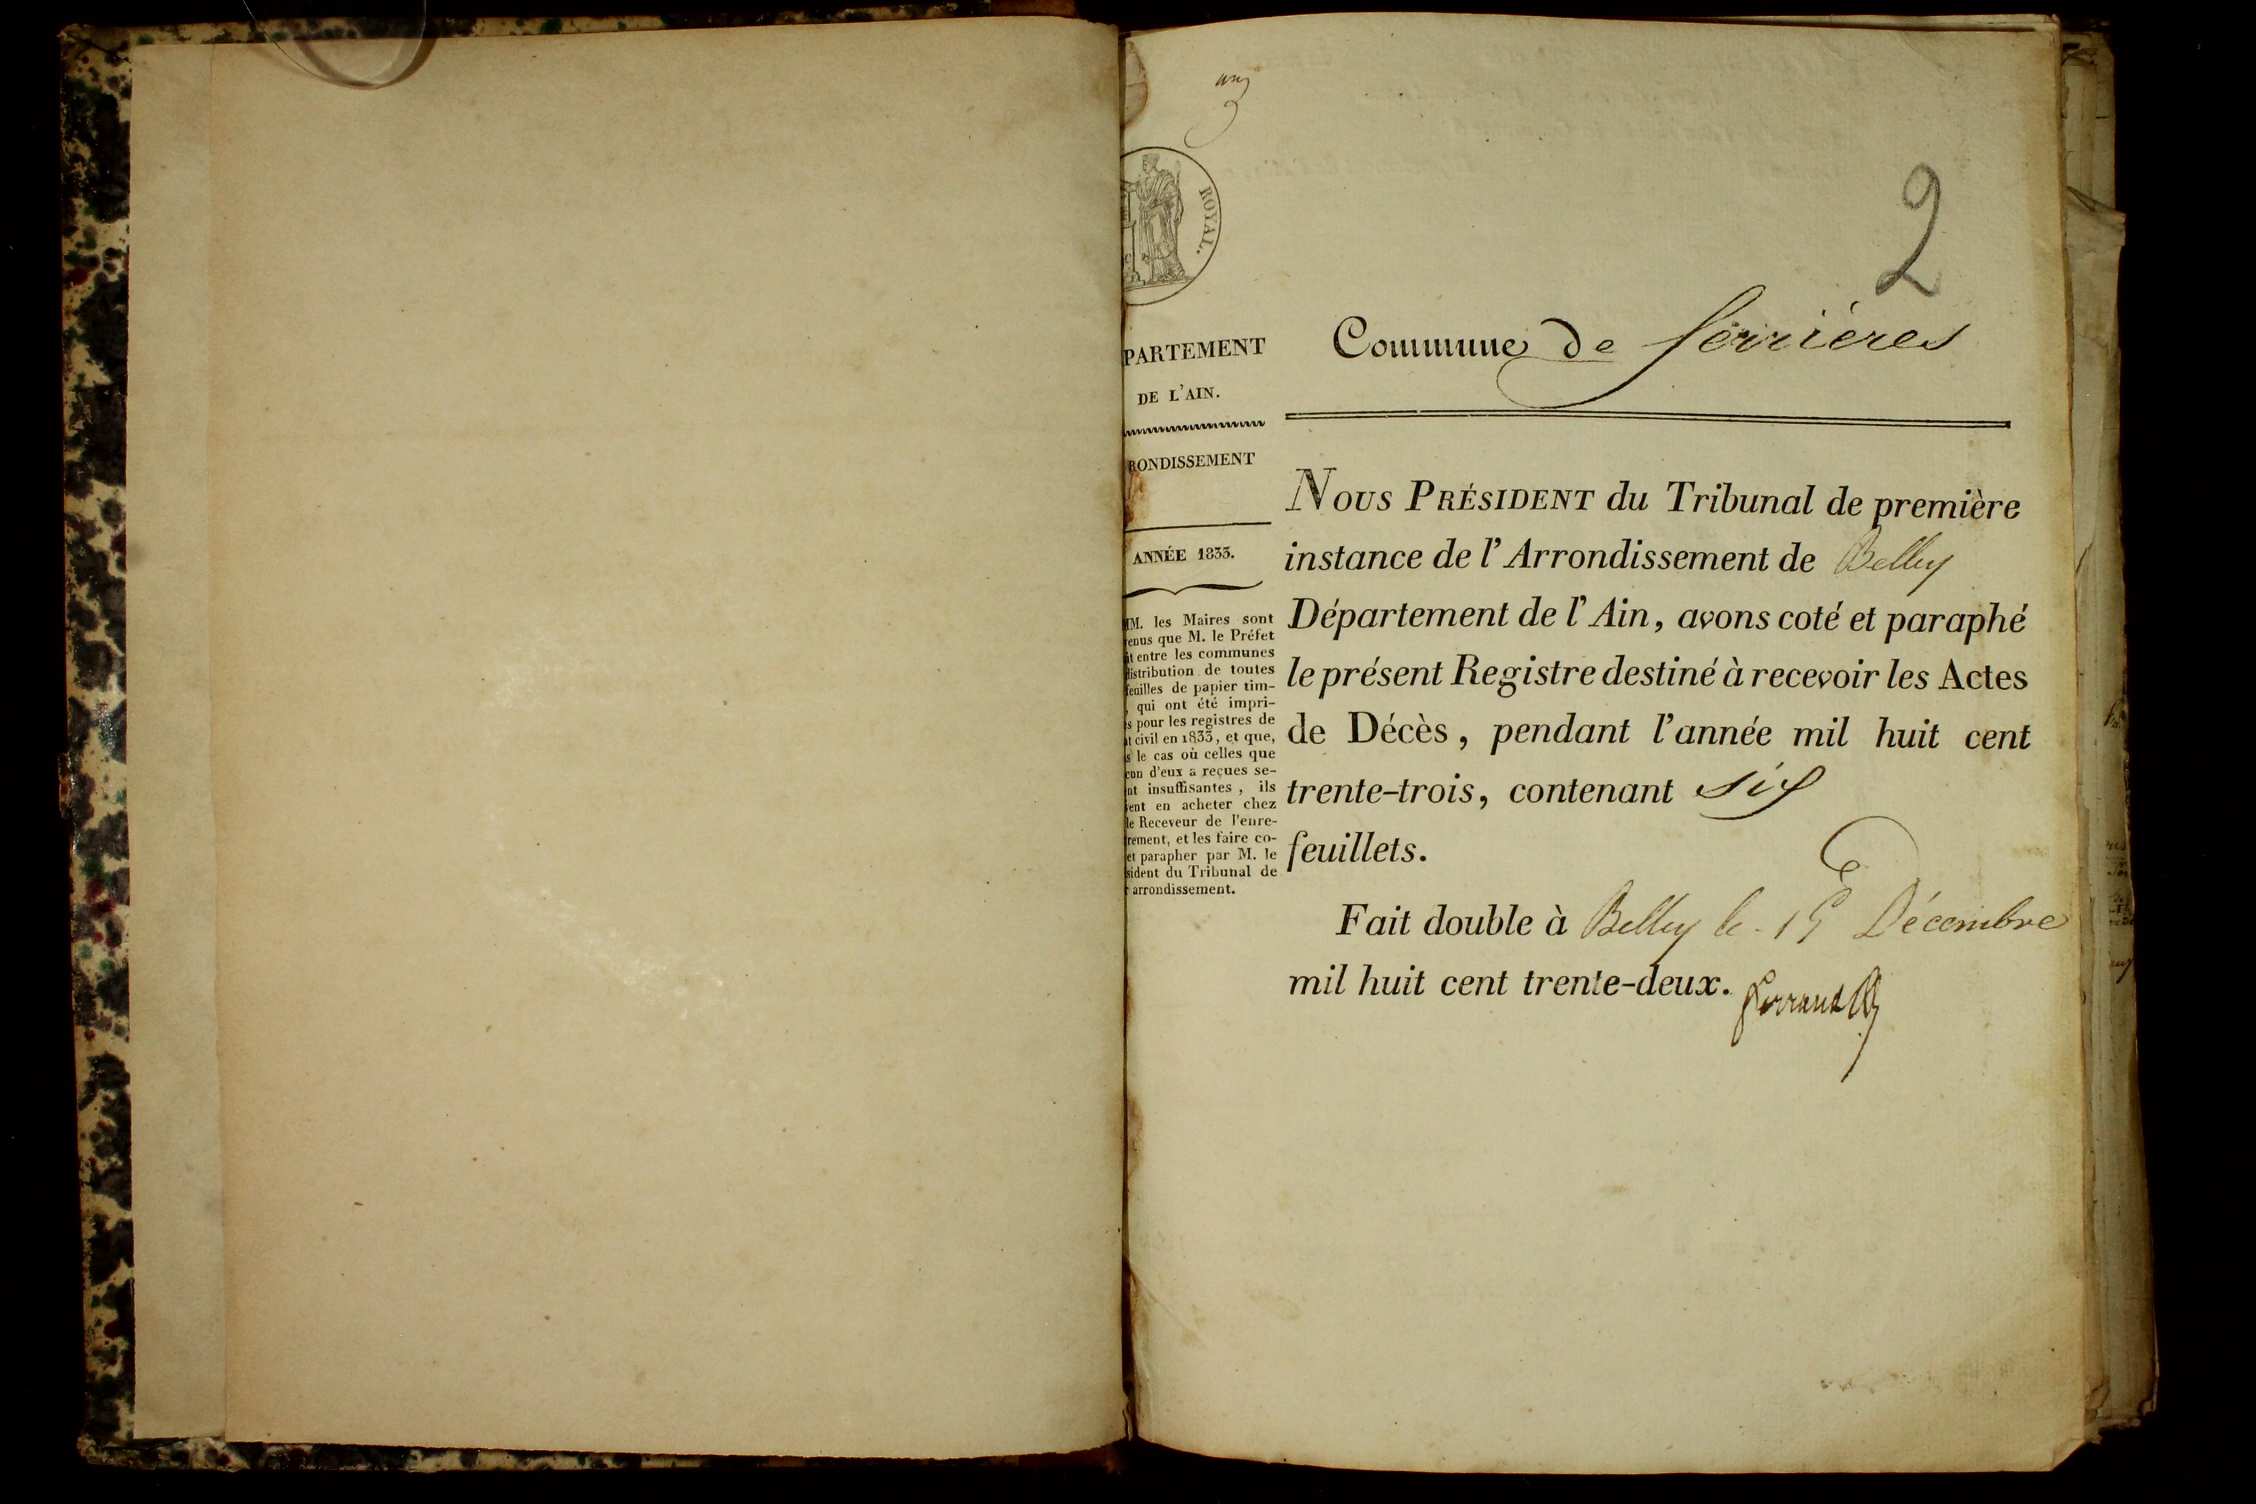 2
ROYAL.
PARTEMENT
DE L'AIN.
RONDISSEMENT
ANNÉE 1833.
MM. les Maires sont
enus que M. le Préfet
it entre les communes
distribution de toutes
feuilles de papier tim-
, qui ont été impri-
s pour les registres de
t civil en 1833, et que,
s le cas où celles que
cun d'eux a reçues se-
nt insuffisantes, ils
ent en acheter chez
le Receveur de l'enre-
rement, et les faire co-
et parapher par M. le
sident du Tribunal de
arrondissement.
Commune de Serrières
NOUS PRÉSIDENT du Tribunal de première
instance de l'Arrondissement de Belley
Département de l'Ain, avons coté et paraphé
le présent Registre destiné à recevoir les Actes
de Décès, pendant l'année mil huit cent
trente-trois, contenant six
feuillets.
Fait double à Belley le 15 Décembre
mil huit cent trente-deux.